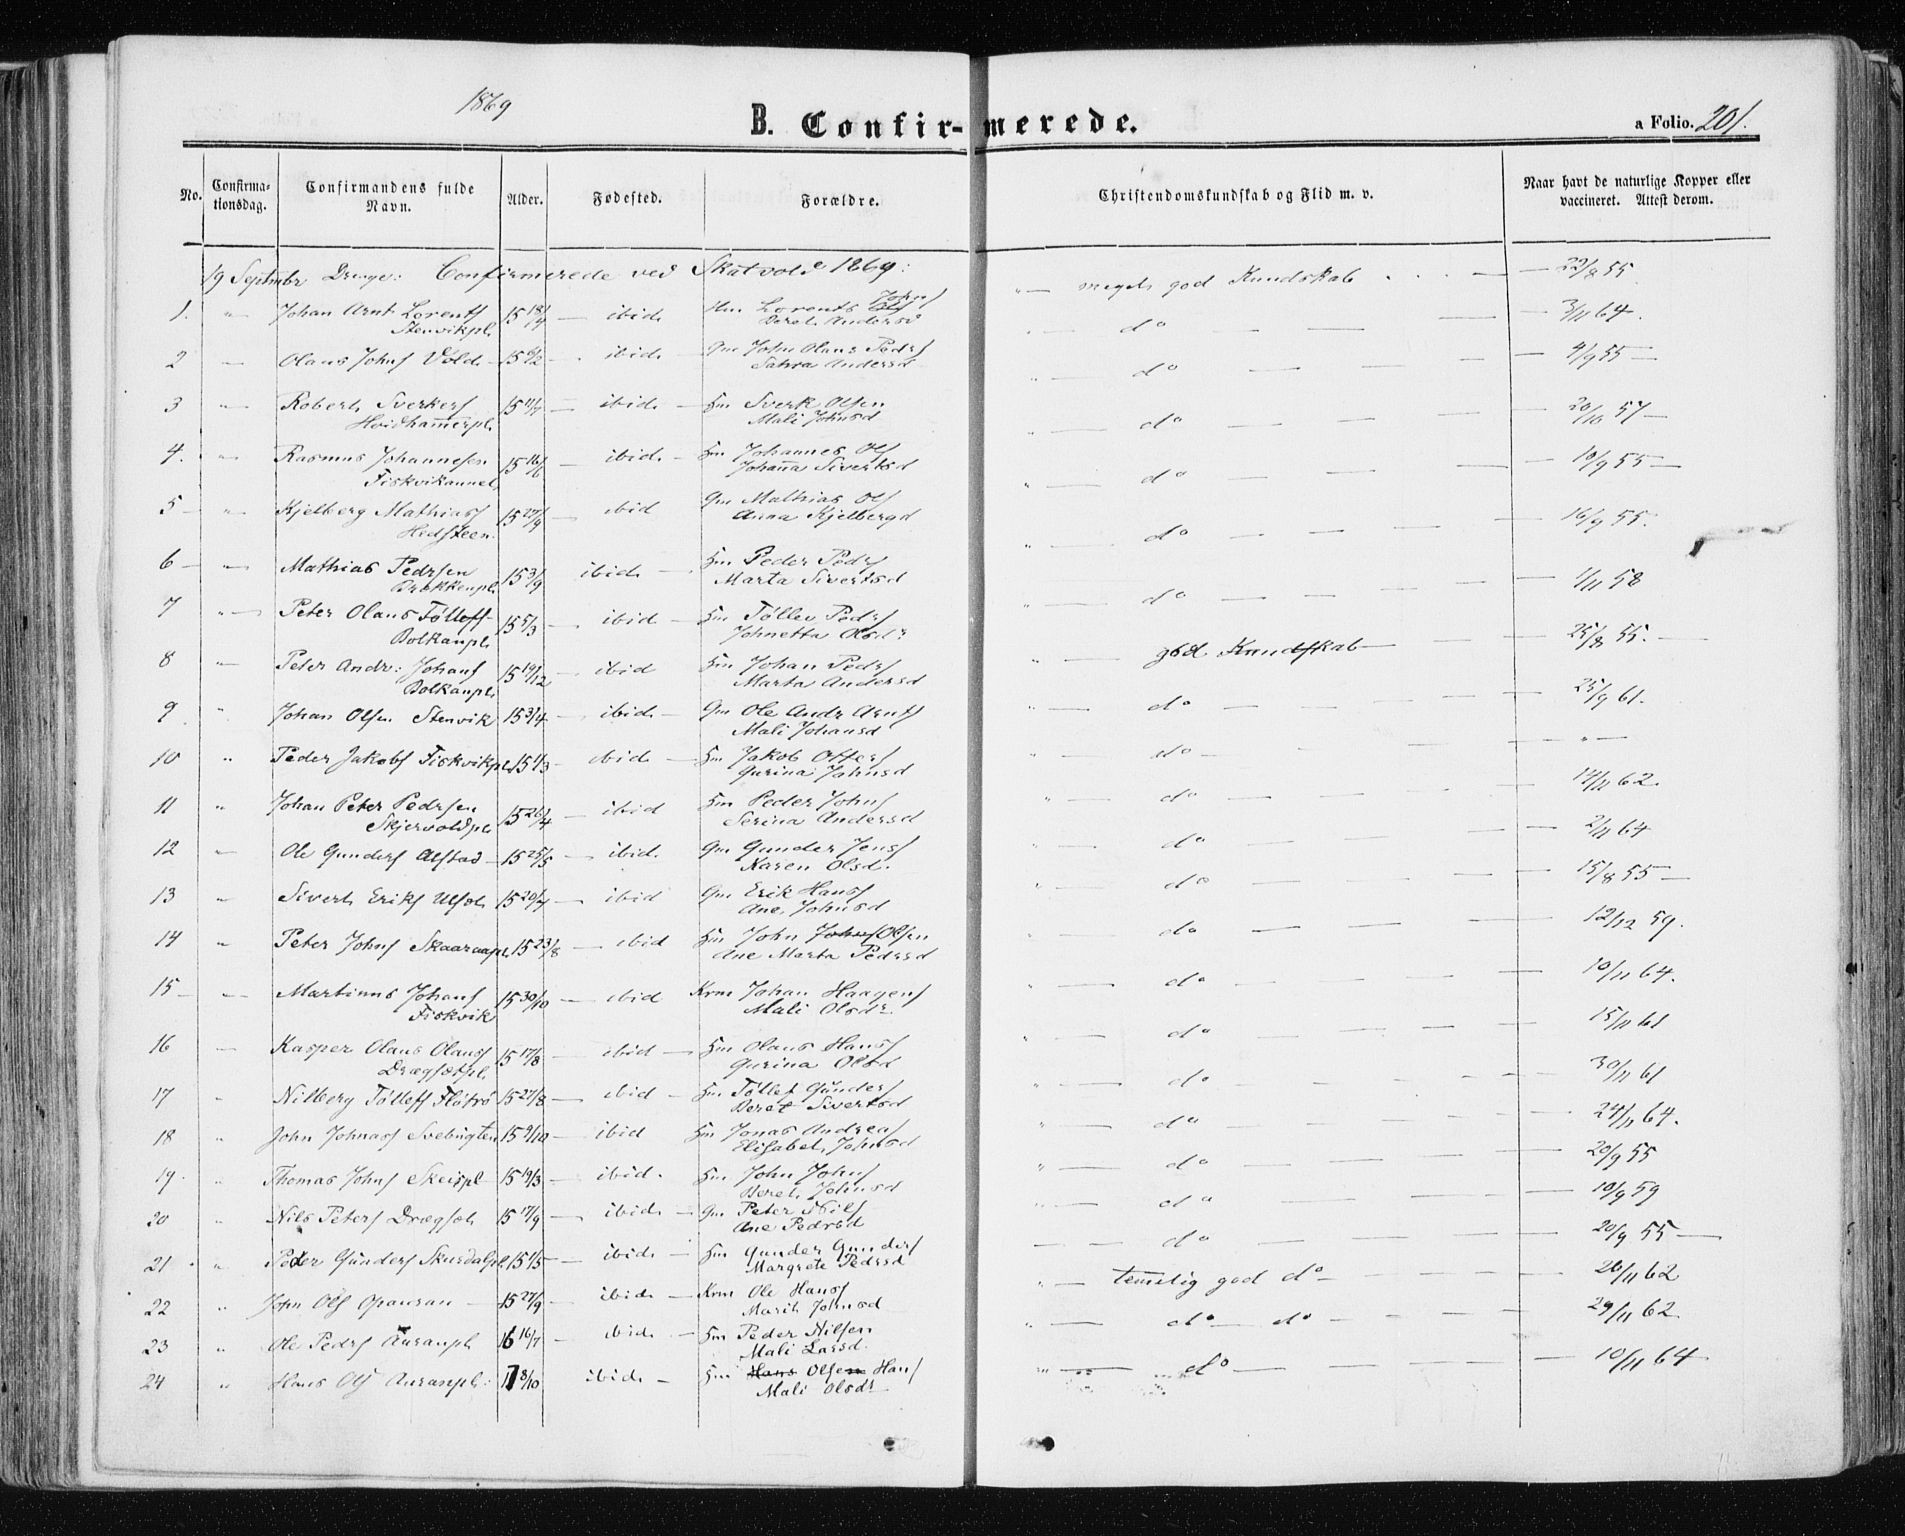 1869
B. Confir-merede.
a Folio. 201.
No.
Confirma-tionsdag.
Confirmandens fulde Navn.
Alder.
Fødested.
Forældre.
Christendomskundskab og Flid m. v.
Naar havt de naturlige Kopper eller vaccineret. Attest derom.
19 Septmbr Drenge: Confirmerede ved Skatvold 1869:
1. " Johan Arnt Lorents 15 18/4 — ibid Hm Lorents Johns " — meget god Kundskab — 22/8 55
Stenvikpl. Beret Andersd
2 — Olaus Johns Vold 15 6/2 — ibid Gm John Olaus Peds " — do — 3/11 64.
Andersd
3 " Robert Sverkers 15 11/7 — ibid. — Hm Sverk Olsen " — do — 4/9 55 —
Hvidhammerpl. Mali Johnsd
4. " Rasmus Johannesen 15 16/6 — ibid. — Hm Johannes Ols " — do — 20/10 57 —
Fiskvikaunet Johanna Sivertsd
5 — " Kjelberg Mathias 15 27/9 — ibid Gm Mathias Ols " — do — 10/9 55 —
Hedsteen. Anna Kjelbergd
6 — " Mathias Pedrsen 15 3/9 ibid — Hm Peder Peds " — do — 16/9 55.
Brekkenpl. Marta Sivertsd
7 " — Peter Olaus Tølleff 15 5/3 — ibid — Hm Tøllev Peds " — do — 1/11 58
Bolkanpl. Johnetta Olsdr
8 " Peter Andr: Johans 15 19/12 — ibid Hm Johan Peds " — god Kundskab — 25/8 55. —
Bolkanpl. Marta Andersd
9 " Johan Olsen Stenvik 15 3/4 — ibid — Gm Ole Andr Arnts " — do — 25/9 61.
Mali Johansd
10 " Peder Jakobs Fiskvikpl. 15 1/3 — ibid. — Hm Jakob Ottess " — do — " —
Gurina Johnsd
11 " Johan Peter Pedrsen 15 26/4 — ibid Hm Peder Johns " — do — 14/11 62.
Skjervoldpl. Serina Andersd
12 " Ole Gunders Alstad — 15 25/5 — ibid. Gm Gunder Jens " — do — 2/11 64
Karen Olsd.
13 " Sivert Eriks 15 20/7 — ibid Gm Erik Hans " — do — 15/8 55 —
Ane Johnsd
14 " Peter Johns Skaaraapl. 15 23/8 — ibid Hm John Johns Olsen " — do — 12/12 59.
Ane Marta Pedrsd
15 — " Martinus Johans 15 30/10 — ibid Krm Johan Haagens " — do — 10/11 64.
Fiskvik Mali Olsdr
16 — Kasper Olaus Olaus 15 17/8 — ibid — Hm Olaus Hans " — do — 15/11 61
Drægsetpl. Gurina Olsd
17 " Nilberg Tølleff Fløtrø 15 27/8 — ibid — Hm Tøllef Gunders " — do — 30/11 61
Beret Sivertsd
18 " John Johnas Svebugten 15 9/10 — ibid Hm Jonas Andreas " — do — 24/11 64.
Elisabet Johnsd
19. " Thomas Johns Skeispl 15 19/3 — ibid. Hm John Johns " — do — 20/9 55
Beret Johnsd
20 " Nils Peters Drægset 15 17/9 — ibid. — Gm Peter Nils " — do — 10/9 59
Ane Pedrsd
21 " Peder Gunders Skurdalpl. 15 1/5 — ibid. — Hm Gunder Gunders — do — 20/9 55 —
Margrete Pedrsd
22 " John Ols Opauran — 15 27/9 — ibid. — Krm Ole Hans " — temelig god do — 26/11 62
Marit Johnsd
23 " Ole Pedrs Auranpl 16 16/7 — ibid. — Hm Peder Nilsen " — do — do — 29/11 62
Mali Larsd.
24 " Hans Ols Auranpl: 17 8/10 ibid. — Hm Hans Olsen Hans " — do — 10/11 64
Mali Olsdr